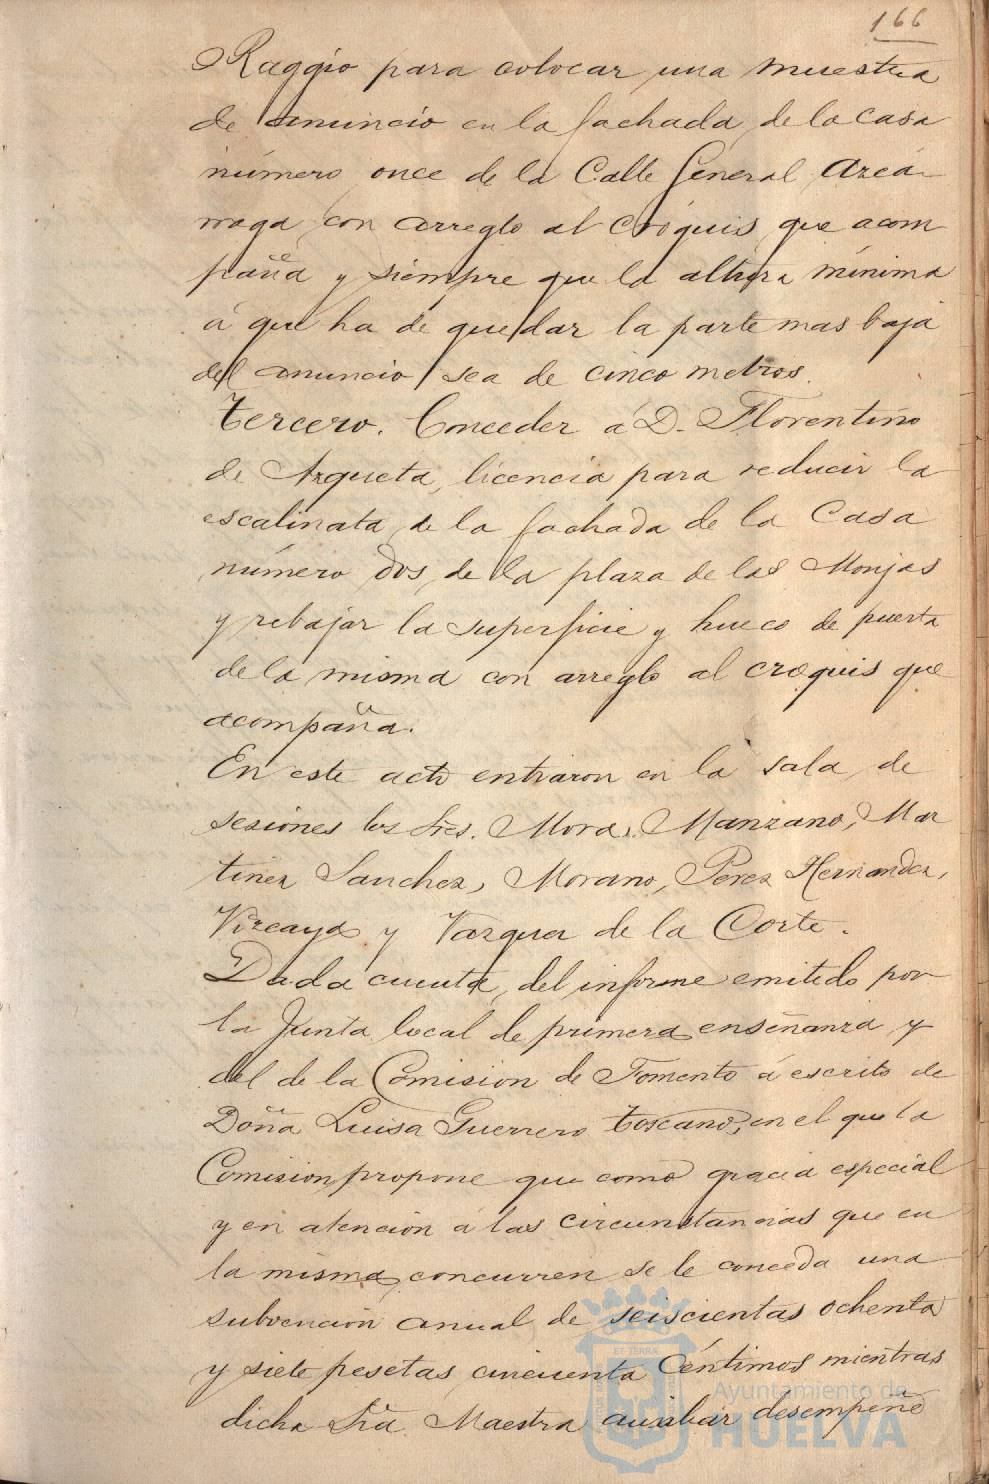 166
Raggio para colocar una muestra
de anuncio en la fachada de la casa
número once de la Calle General Azcá-
rraga con arreglo al cróquis que acom
paña y siempre que la altura mínima
á que ha de quedar la parte mas baja
del anuncio sea de cinco metros.
Tercero. Conceder á D. Florentino
de Azqueta, licencia para reducir la
escalinata de la fachada de la Casa
número dos, de la plaza de las Monjas
y rebajar la superficie y hueco de puerta
de la misma con arreglo al croquis que
acompaña.
En este acto entraron en la sala de
sesiones los Sres. Mora, Manzano, Mar
tinez Sanchez, Morano, Perez Hernandez,
Vizcaya y Vazquez de la Corte.
Dada cuenta, del informe emitido por
la Junta local de primera enseñanza y
del de la Comision de Fomento á escrito de
Doña Luisa Guerrero Toscano, en el que la
Comision propone que como gracia especial
y en atención á las circunstancias que en
la misma concurren se le conceda una
subvención anual de seiscientas ochenta
y siete pesetas cincuenta céntimos mientras
dicha Sra. Maestra auxiliar desempeñe
Ayuntamiento de
HUELVA